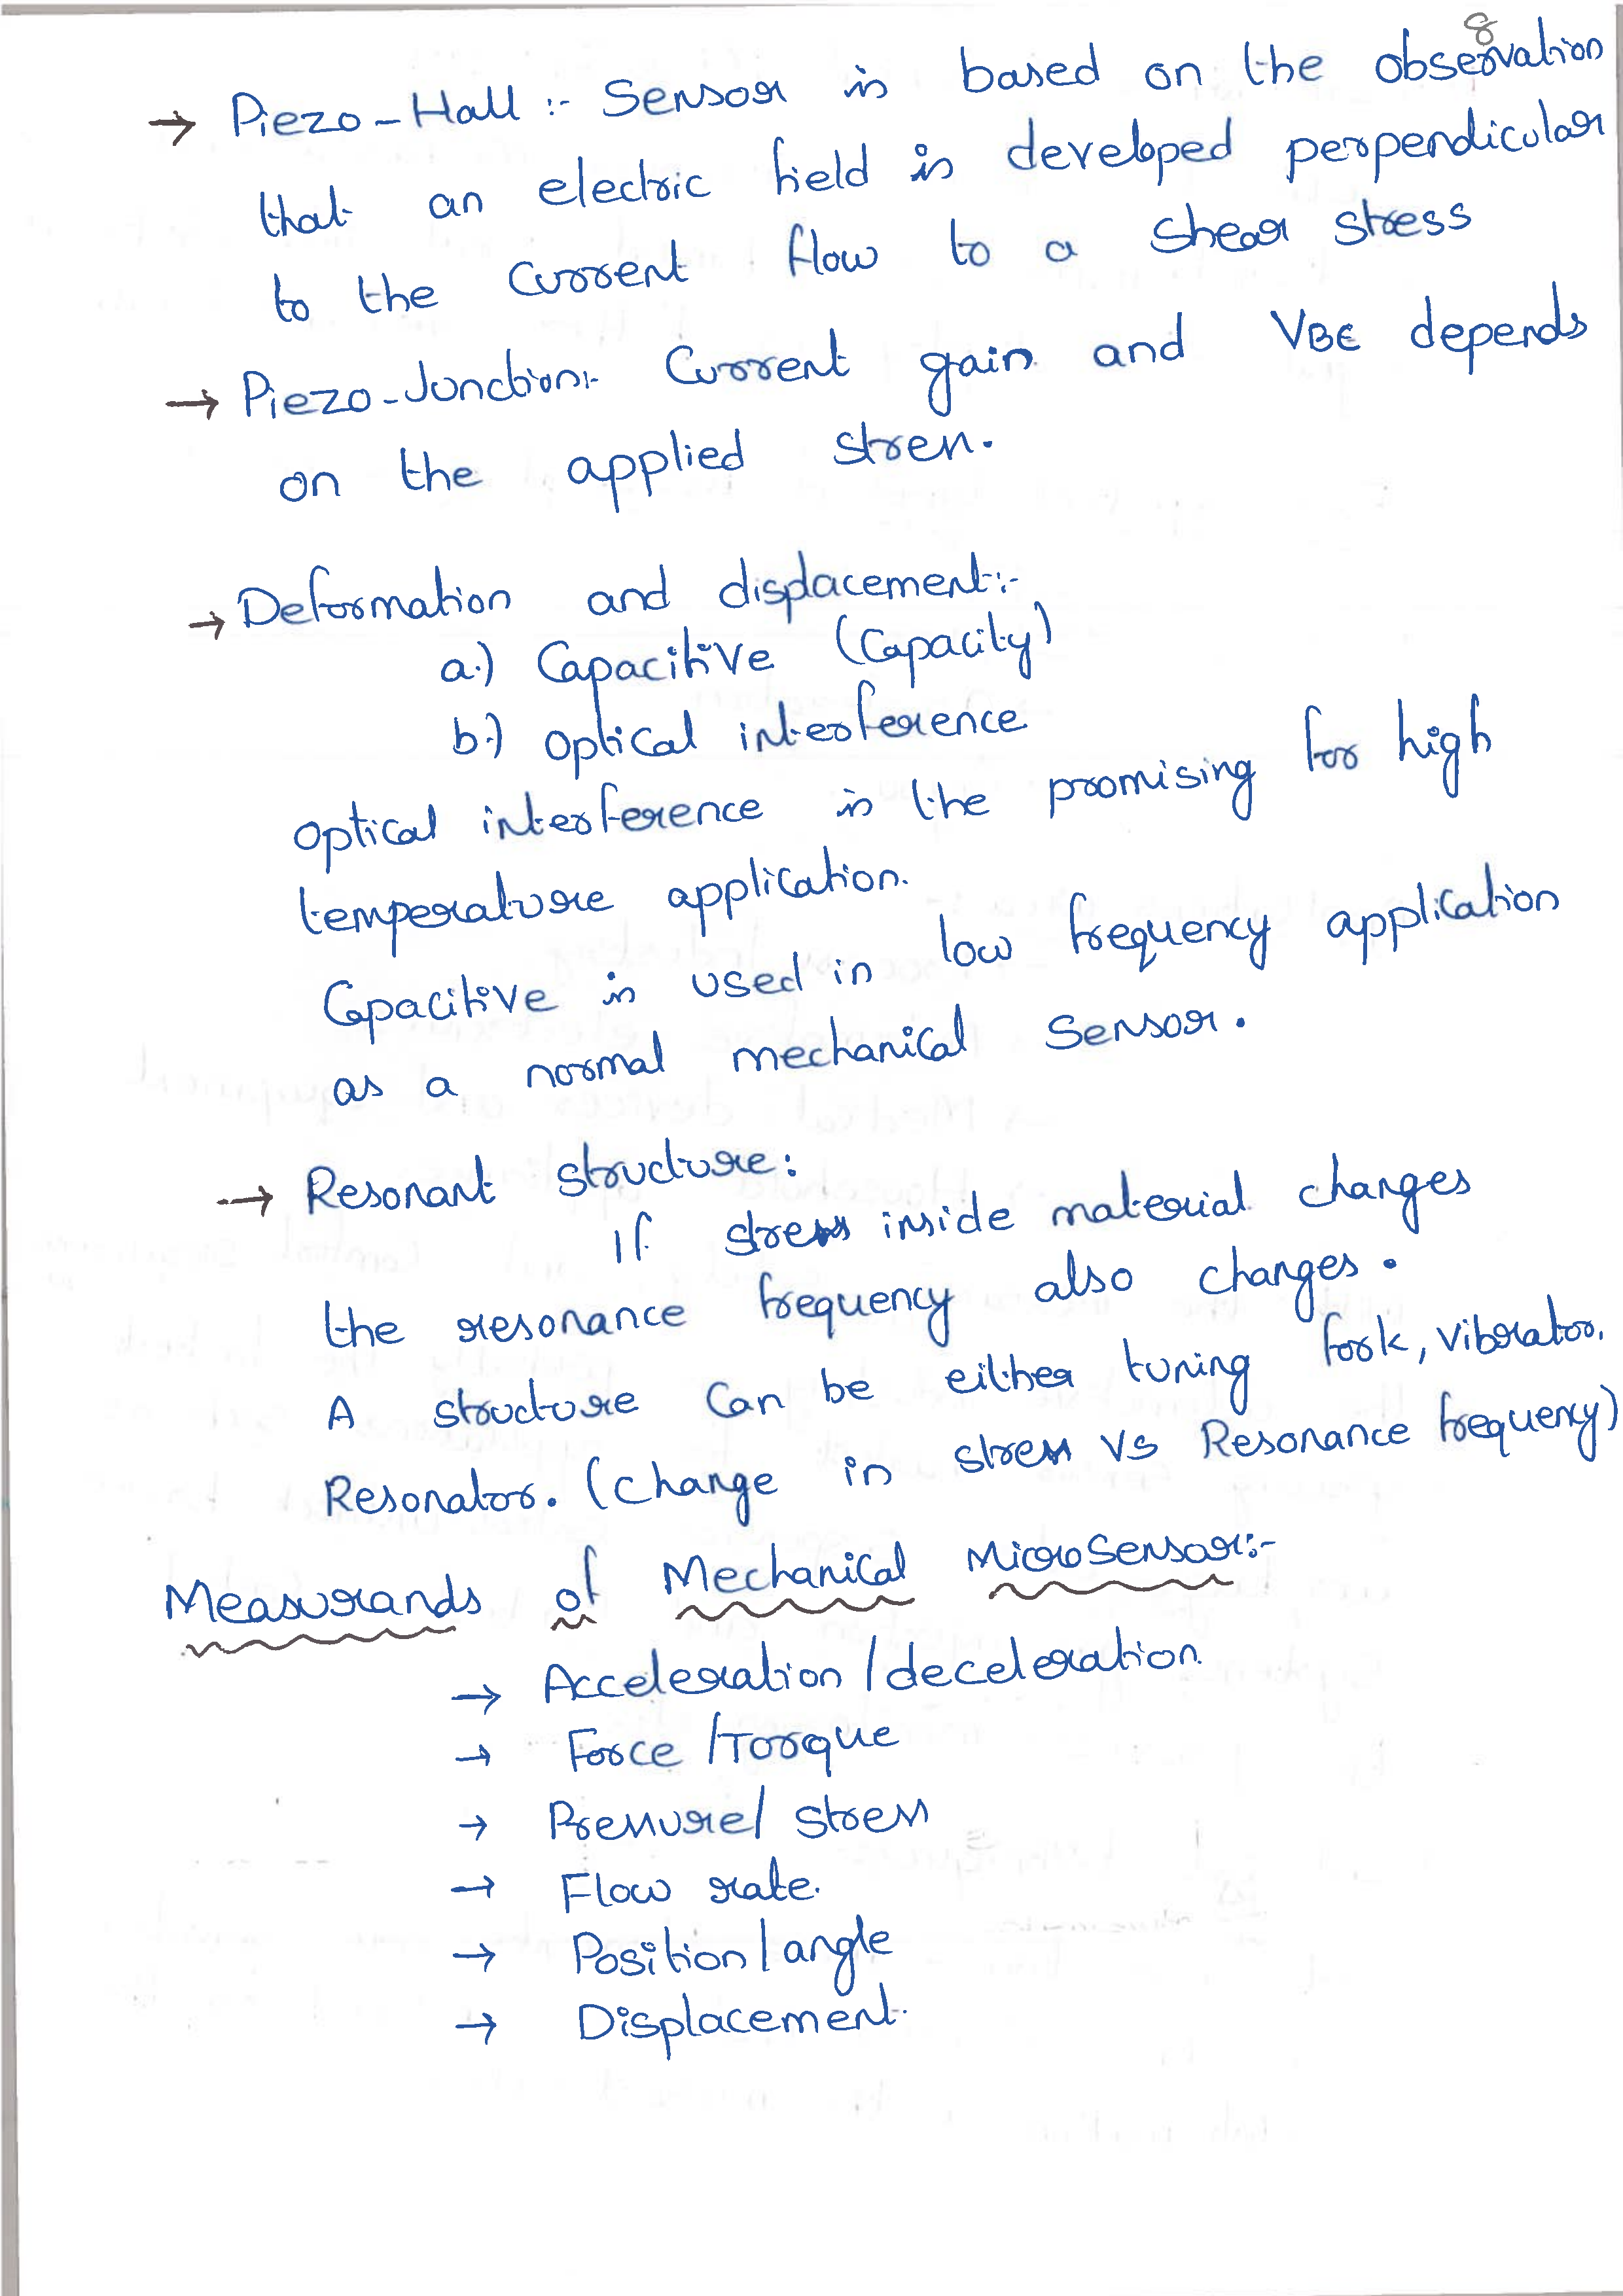 8
→ Piezo-Hall :- Sensor is based on the observation
that an electric field is developed perpendicular
to the current flow to a shear stress
→ Piezo-Junction:- Current gain and VBE depends
on the applied stress.
→ Deformation and displacement:-
a.) Capacitive (Capacity)
b.) Optical interference
Optical interference is the promising for high
temperature application.
Capacitive is used in low frequency application
as a normal mechanical Sensor.
→ Resonant structure:
If stress inside material changes
the resonance frequency also changes.
A structure can be either tuning fork, vibrator,
Resonator. (change in stress vs Resonance frequency)
Measurands of Mechanical MicroSensor:-
→ Acceleration/deceleration
→ Force/Torque
→ Pressure/stress
→ Flow rate.
→ Position/angle
→ Displacement.